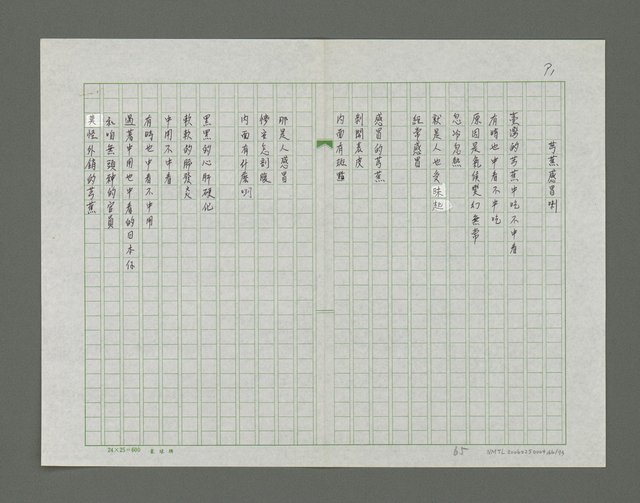 P1
芎蕉感冒咧
臺灣的芎蕉中吃不中看
有時也中看不中吃
原因是氣候變幻無常
忽冷忽熱
就是人也受昧起
經常感冒
感冒的芎蕉
剝開表皮
內面有斑點
那是人感冒
怎剖腹
內面有什麼咧
黑黑的心肝硬化
軟軟的肺發炎
中用不中看
有時也中看不中用
遇著中用也中看的日本仔
和咱無頭神的官員
莫怪外銷的芎蕉
24×25=600
65
NMTL